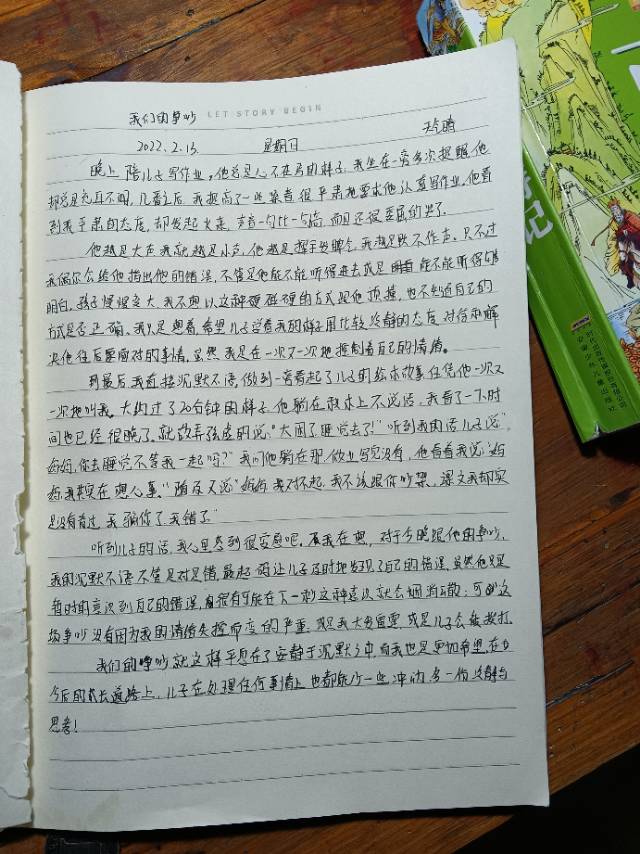 LET STORY BEGIN
我们的争吵
2022.2.13. 星期日
晚上陪儿子写作业。他总是心不在焉的样子,我坐在一旁多次提醒,他
却总是充耳不闻,几番之后,我提高了一些嗓音很严肃地要求他认真写作业,他看
到我严肃的态度,却发起火来,声音一句比一句高,而且还很委屈的哭了。
他越是大声我就越是小声,他越是挥手发脾气,我越是默不作声。只不过
我偶尔会给他指出他的错误,不管是他能不能听得进去或是能不能听得
明白。孩子慢慢变大,我不想以这种硬碰硬的方式跟他顶撞,也不知道自己的
方式是否正确,我只是想着,希望儿子学着我的样子用比较冷静的态度对待和解
决他往后要面对的事情。虽然我是在一次又一次地控制着自己的情绪。
到最后,我直接沉默不语,做到一旁看起了儿子的绘本故事任凭他一次又
一次地叫我。大约过了20分钟的样子,他躺在床上不说话,我看了一下时
间也已经很晚了,就故弄玄虚的说:"太困了睡觉去了!"听到我的话儿子说"
妈妈,你去睡觉不等我一起吗?"我问他躺在那,作业写完没有,他看着我说:"妈
妈我其实在想心事。"随及又说"妈妈我对不起,我不该跟你吵架,课文我却实
是没有背过,我骗你了,我错了"
听到儿子的话,我心里感到很安慰吧。我在想,对于今晚跟他的争吵,
我的沉默不语不管是对是错,最起码让儿子及时地发现了自己的错误,虽然他只是
暂时的意识到自己的错误,有很有可能在下一秒这种意识就会烟消云散;可这
场争吵没有因为我的情绪失控而变的严重,或是我大发雷霆,或是儿子会被挨打。
我们的争吵就这样平息在了安静于沉默之中,而我也是更加希望,在
今后的成长道路上,儿子在处理任何事情上也都能少一些冲动,多一份冷静与
思考!